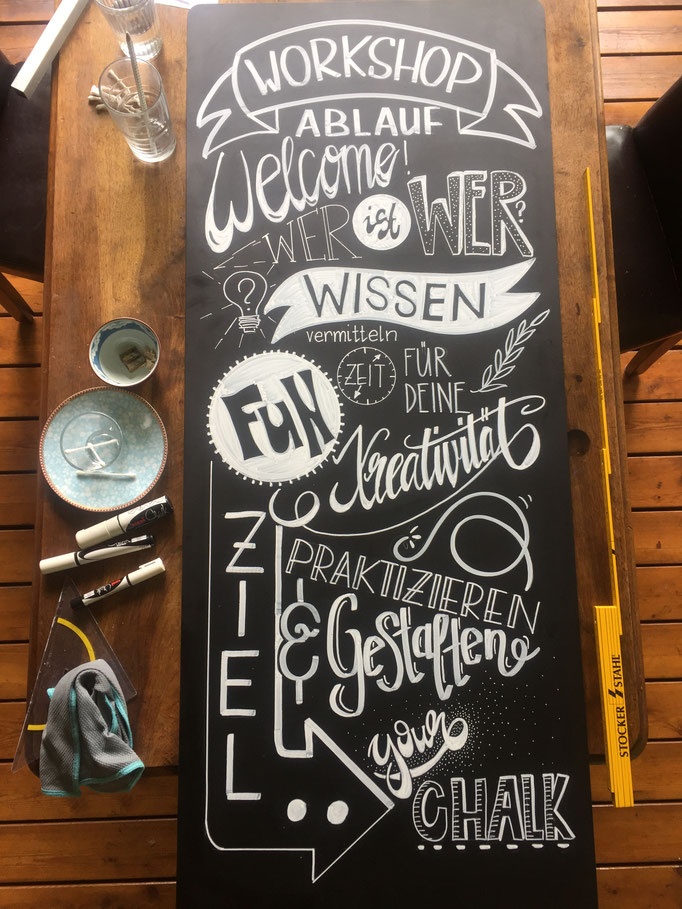 WORKSHOP
ABLAUF
Welcome!
WER ist WER?
?
WISSEN
vermitteln
FUN
ZEIT
FÜR
DEINE
Kreativität
ZIEL
PRAKTIZIEREN
& Gestalten
your
CHALK
STOCKER STAHL